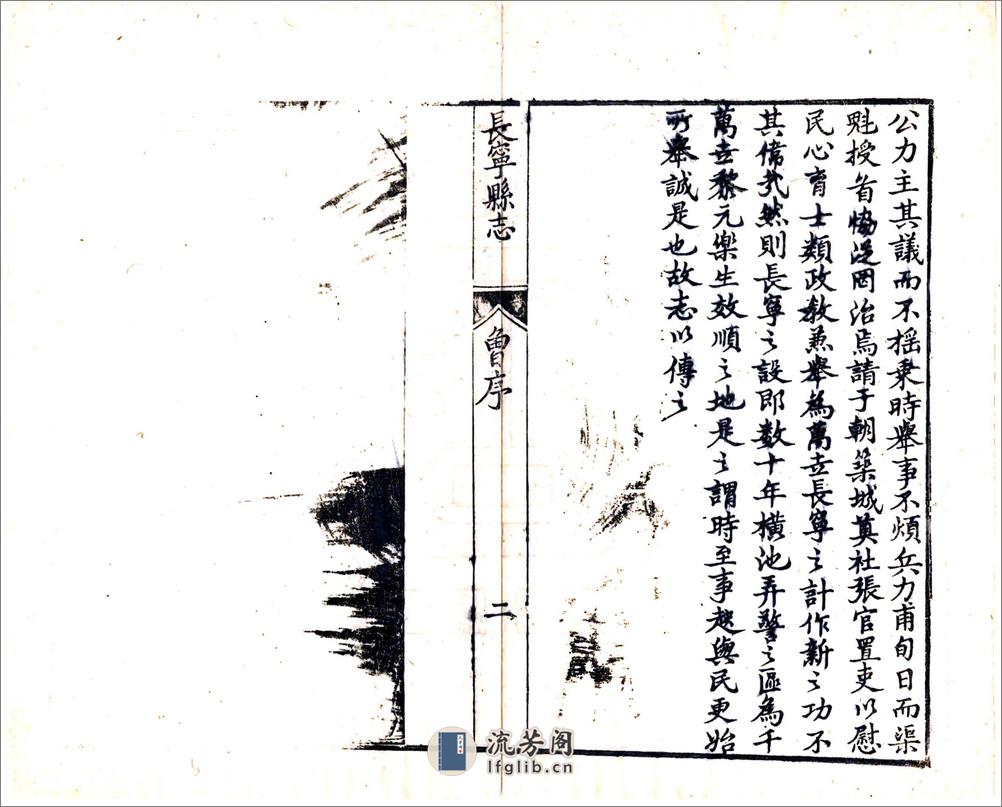 公力主其議而不搖乗時舉事不煩兵力甫旬日而渠
魁授首協從罔治焉請于朝築城奠社張官置吏以慰
民心育士類政敎兼舉為萬世長寧之計作新之功不
其偉哉然則長寧之設即数十年橫池弄警之區為千
萬世黎元樂生效順之地是之謂時至事起與民更始
所舉誠是也故志以傳之
長寧縣志
曾序
二
流芳阁
lfglib.cn